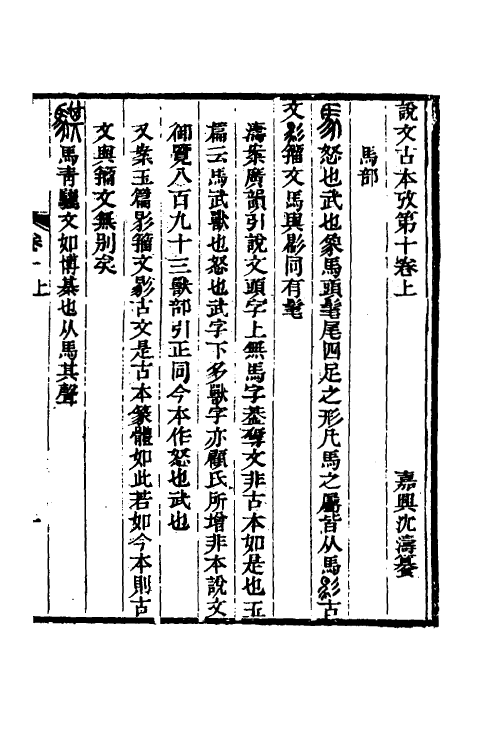 說文古本攷第十卷上
嘉興沈濤纂
馬部
怒也武也象馬頭髦尾四足之形凡馬之屬皆从馬影古
文影籀文馬與影同有髦
濤案廣韻引說文頭字上無馬字葢奪文非古本如是也玉
篇云馬武獸也怒也武字下多獸字亦顧氏所增非本說文
御覽八百九十三獸部引正同今本作怒也武也
又案玉篇影籀文影古文是古本篆體如此若如今本則古
文與籀文無別矣
馬青驪文如博棊也从馬其聲
上